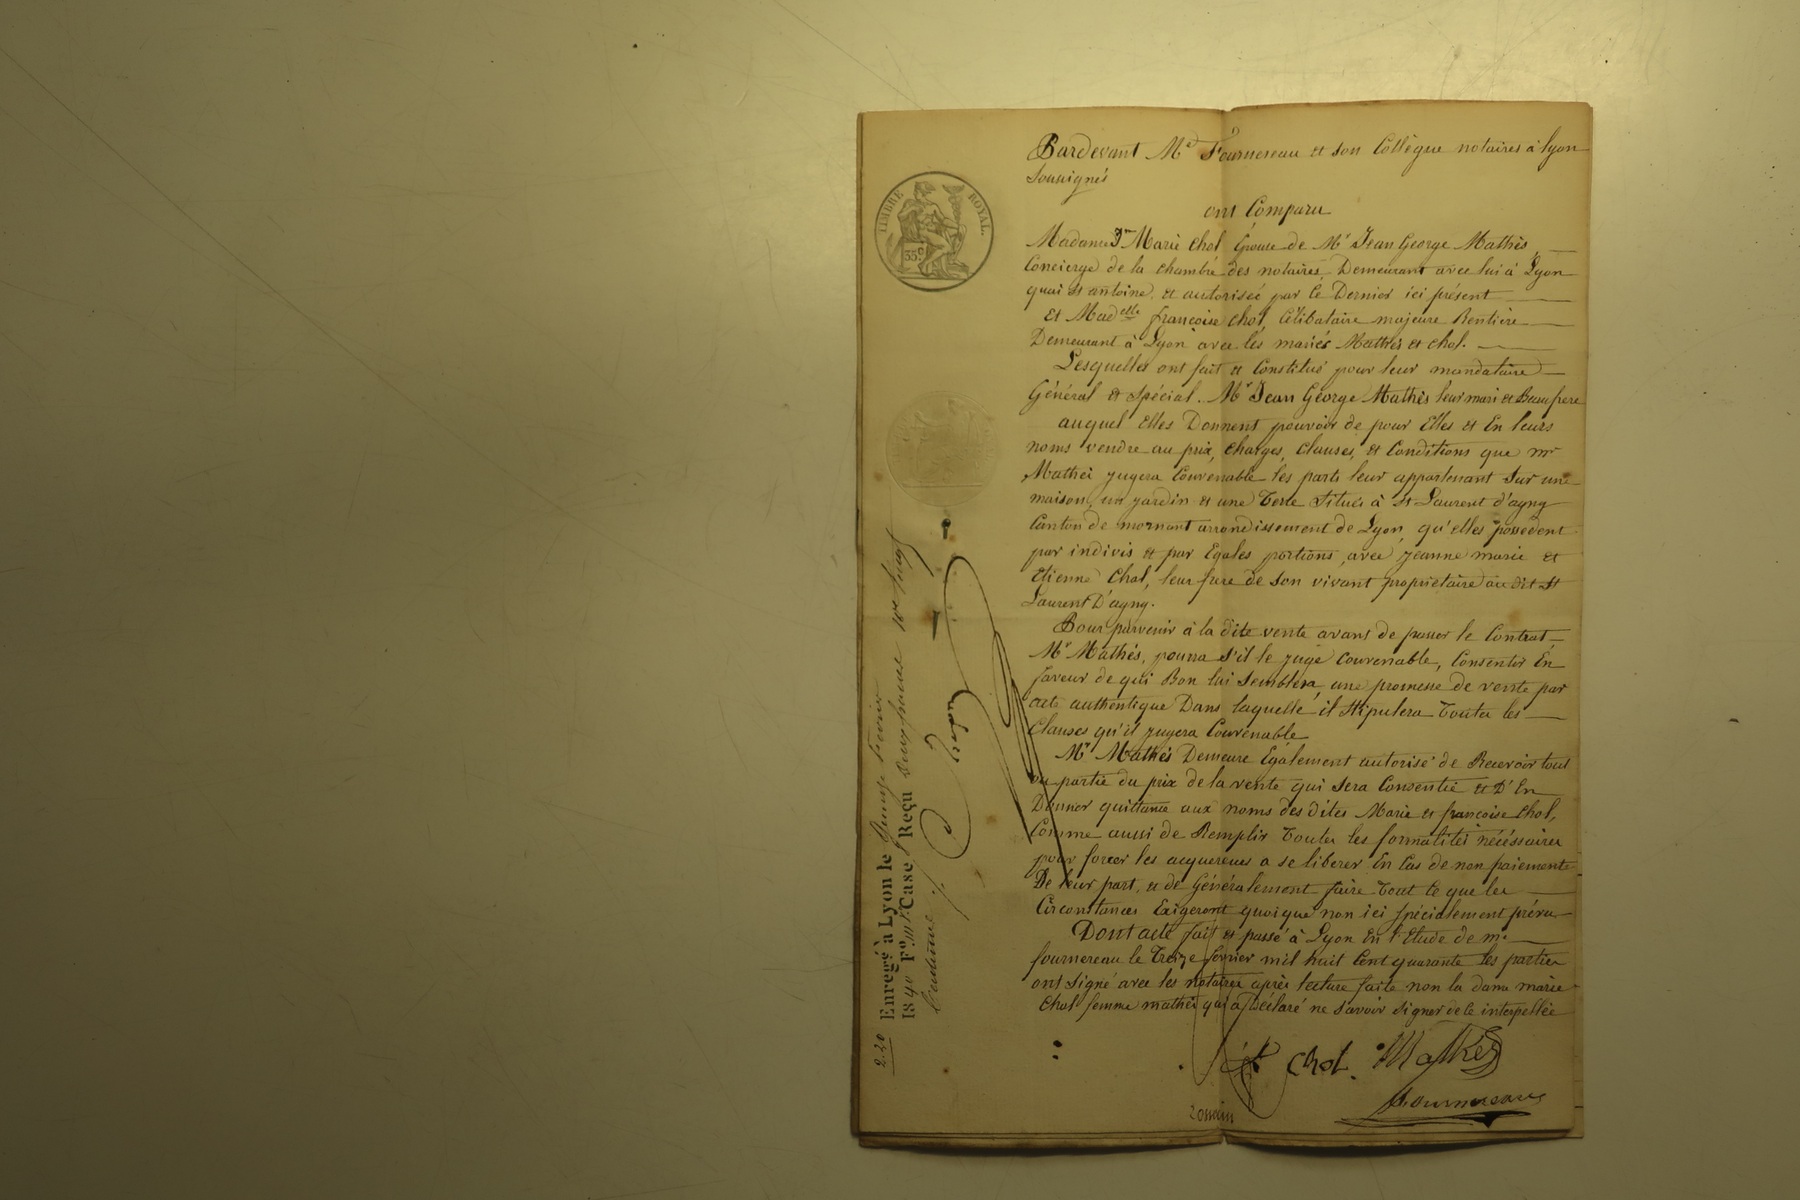 Pardevant Me Fournereau et son Collègue notaires à Lyon
Soussignés
ont Comparu
Madame Marie Chol Epouse de Mr Jean George Mathès
Concierge de la chambre des notaires, Demeurant avec lui à Lyon
quai St antoine, et autorisée par ce Dernier ici présent
Et Madelle françoise Chol, Célibataire majeure Rentière
Demeurant à Lyon avec les mariés Mathès et chol.
Lesquelles ont fait et Constitué pour leur mandataire
Général et Spécial. Mr Jean George Mathès leur mari et Beau frere
auquel Elles Donnent pouvoir de pour Elles et En leurs
noms vendre au prix, Charges, Clauses, et Conditions que mr
Mathès jugera Convenable les parts leur appartenant Sur une
maison, un jardin et une Terre Situés à St Laurent d'agny
Canton de mornant arrondissement de Lyon, qu'elles possedent
par indivis et par Egales portions, avec jeanne marie et
Etienne Chol, leur frere de son vivant propriétaire au dit St
Laurent D'agny.
Pour parvenir à la dite vente avant de passer le Contrat
Mr Mathès, pourra s'il le juge Convenable, Consentir En
faveur de qui Bon lui Semblera, une promesse de vente par
acte authentique Dans laquelle il Stipulera Toutes les
Clauses qu'il jugera Convenable
Mr Mathès Demeure Egalement autorisé de Recevoir tout
ou partie du prix de la vente qui Sera Consentie et D'En
Donner quittance aux noms des dites Marie et françoise Chol,
Comme aussi de Remplir Toutes les formalités nécéssaires
pour forcer les acquereurs a se liberer En Cas de non paiements
De leur part, et de Généralement faire Tout ce que les
Circonstances Exigeront quoique non ici spécialement prévu
Dont acte fait et passé à Lyon En l'Etude de me
fournereau le Treize fevrier mil huit Cent quarante les parties
ont Signé avec les notaires après lecture faite non la dame marie
Chol femme mathès qui a Déclaré ne Savoir Signer de ce interpellée
Chol. Mathès
Fournereau
TIMBRE ROYAL.
35 c
Enregé à Lyon le quinze fevrier
1840 Fo Case Reçu Deux francs
Centimes
2.20